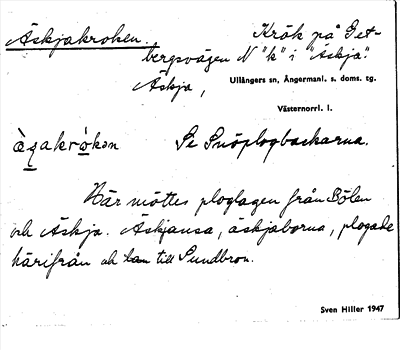 Äskjakroken.
Krök på Get-
bergsvägen N "k" i "Äskja".
Äskja,
Ullångers sn, Ångermanl. s. doms. tg.
Västernorrl. l.
Se Snöplogbackarna.
Här möttes ploglagen från Bölen
och Äskja. Äskjausa, äskjaborna, plogade
härifrån och till Sundbron.
Sven Hiller 1947